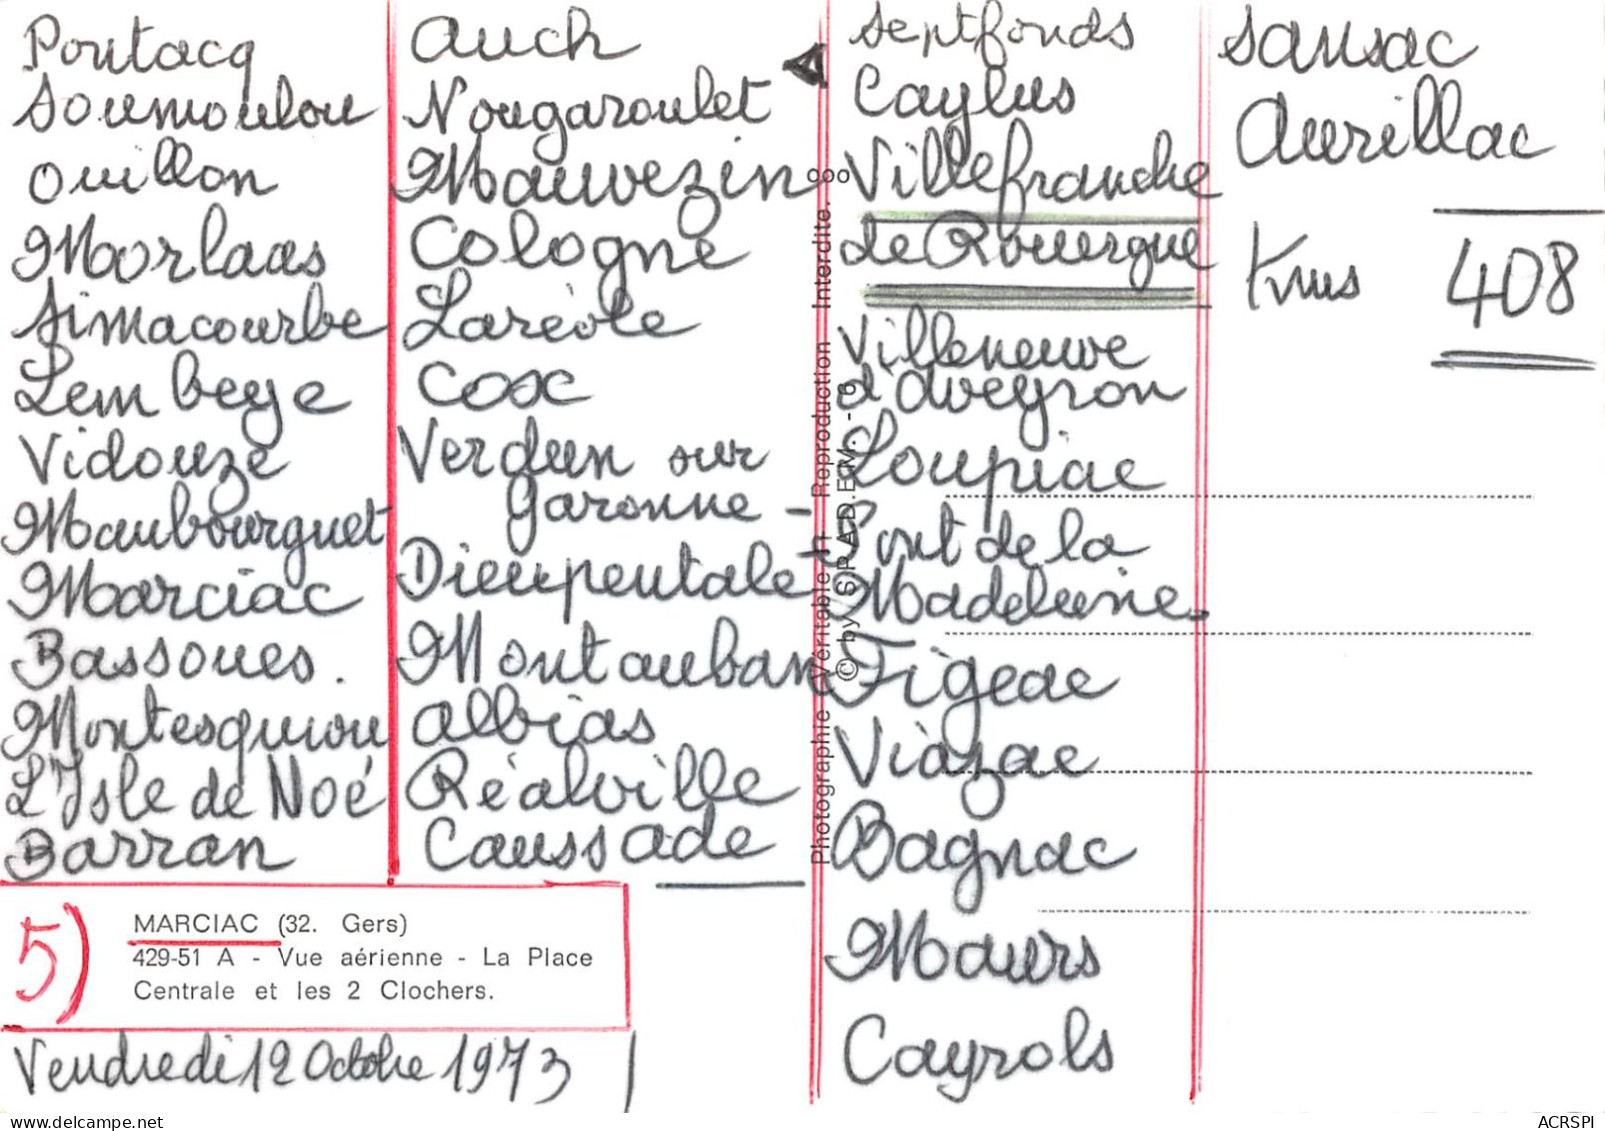 Pontacq
Soumoulou
Ouillon
Morlaas
Simacourbe
Lembeye
Vidouze
Maubourguet
Marciac
Bassoues.
Montesquiou
L'Isle de Noé
Barran
5)
MARCIAC (32. Gers)
429-51 A - Vue aérienne - La Place
Centrale et les 2 Clochers.
Vendredi 12 Octobre 1973
Auch
Nougaroulet
Mauvezin
Cologne
Laréole
Cox
Verdun sur
Garonne -
Dieupentale -
Montauban
Albias
Réalville
Caussade
Photographie Véritable - Reproduction Interdite.
© by S.P.A.D.E.M. - 6
Septfonds
Caylus
Villefranche
de Rouergue
Villeneuve
d'Aveyron
Loupiac
Pont de la
Madeleine.
Figeac
Viazac
Bagnac
Maurs
Cayrols
Sansac
Aurillac
Kms 408
delcampe.net
ACRSPI